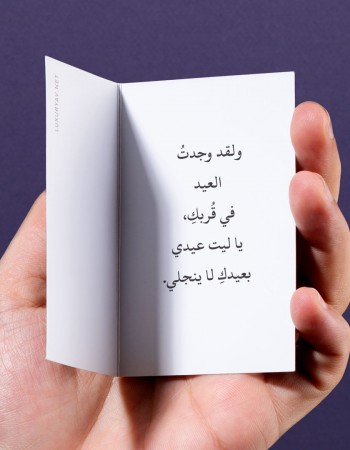 ولقد وجدتُ
العيد
في قُربكِ،
يا ليت عيدي
بعيدكِ لا ينجلي.
LUXURYAY.NET